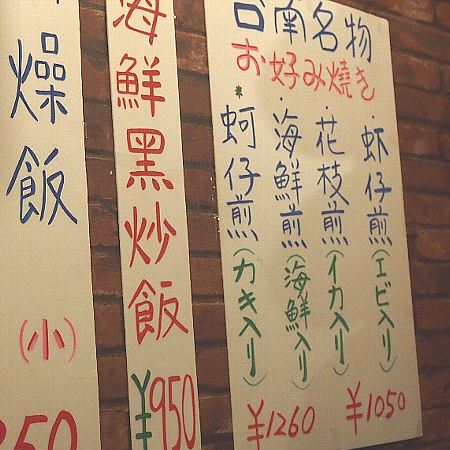 台南名物
お好み焼き
蚵仔煎(カキ入り)
海鮮煎(海鮮入り)
¥1260
花枝煎(イカ入り)
虾仔煎(エビ入り)
¥1050
海鮮黑炒飯
¥950
燥飯
(小)
350